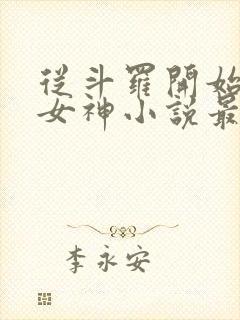 從斗羅開始
女神小說最
李永安